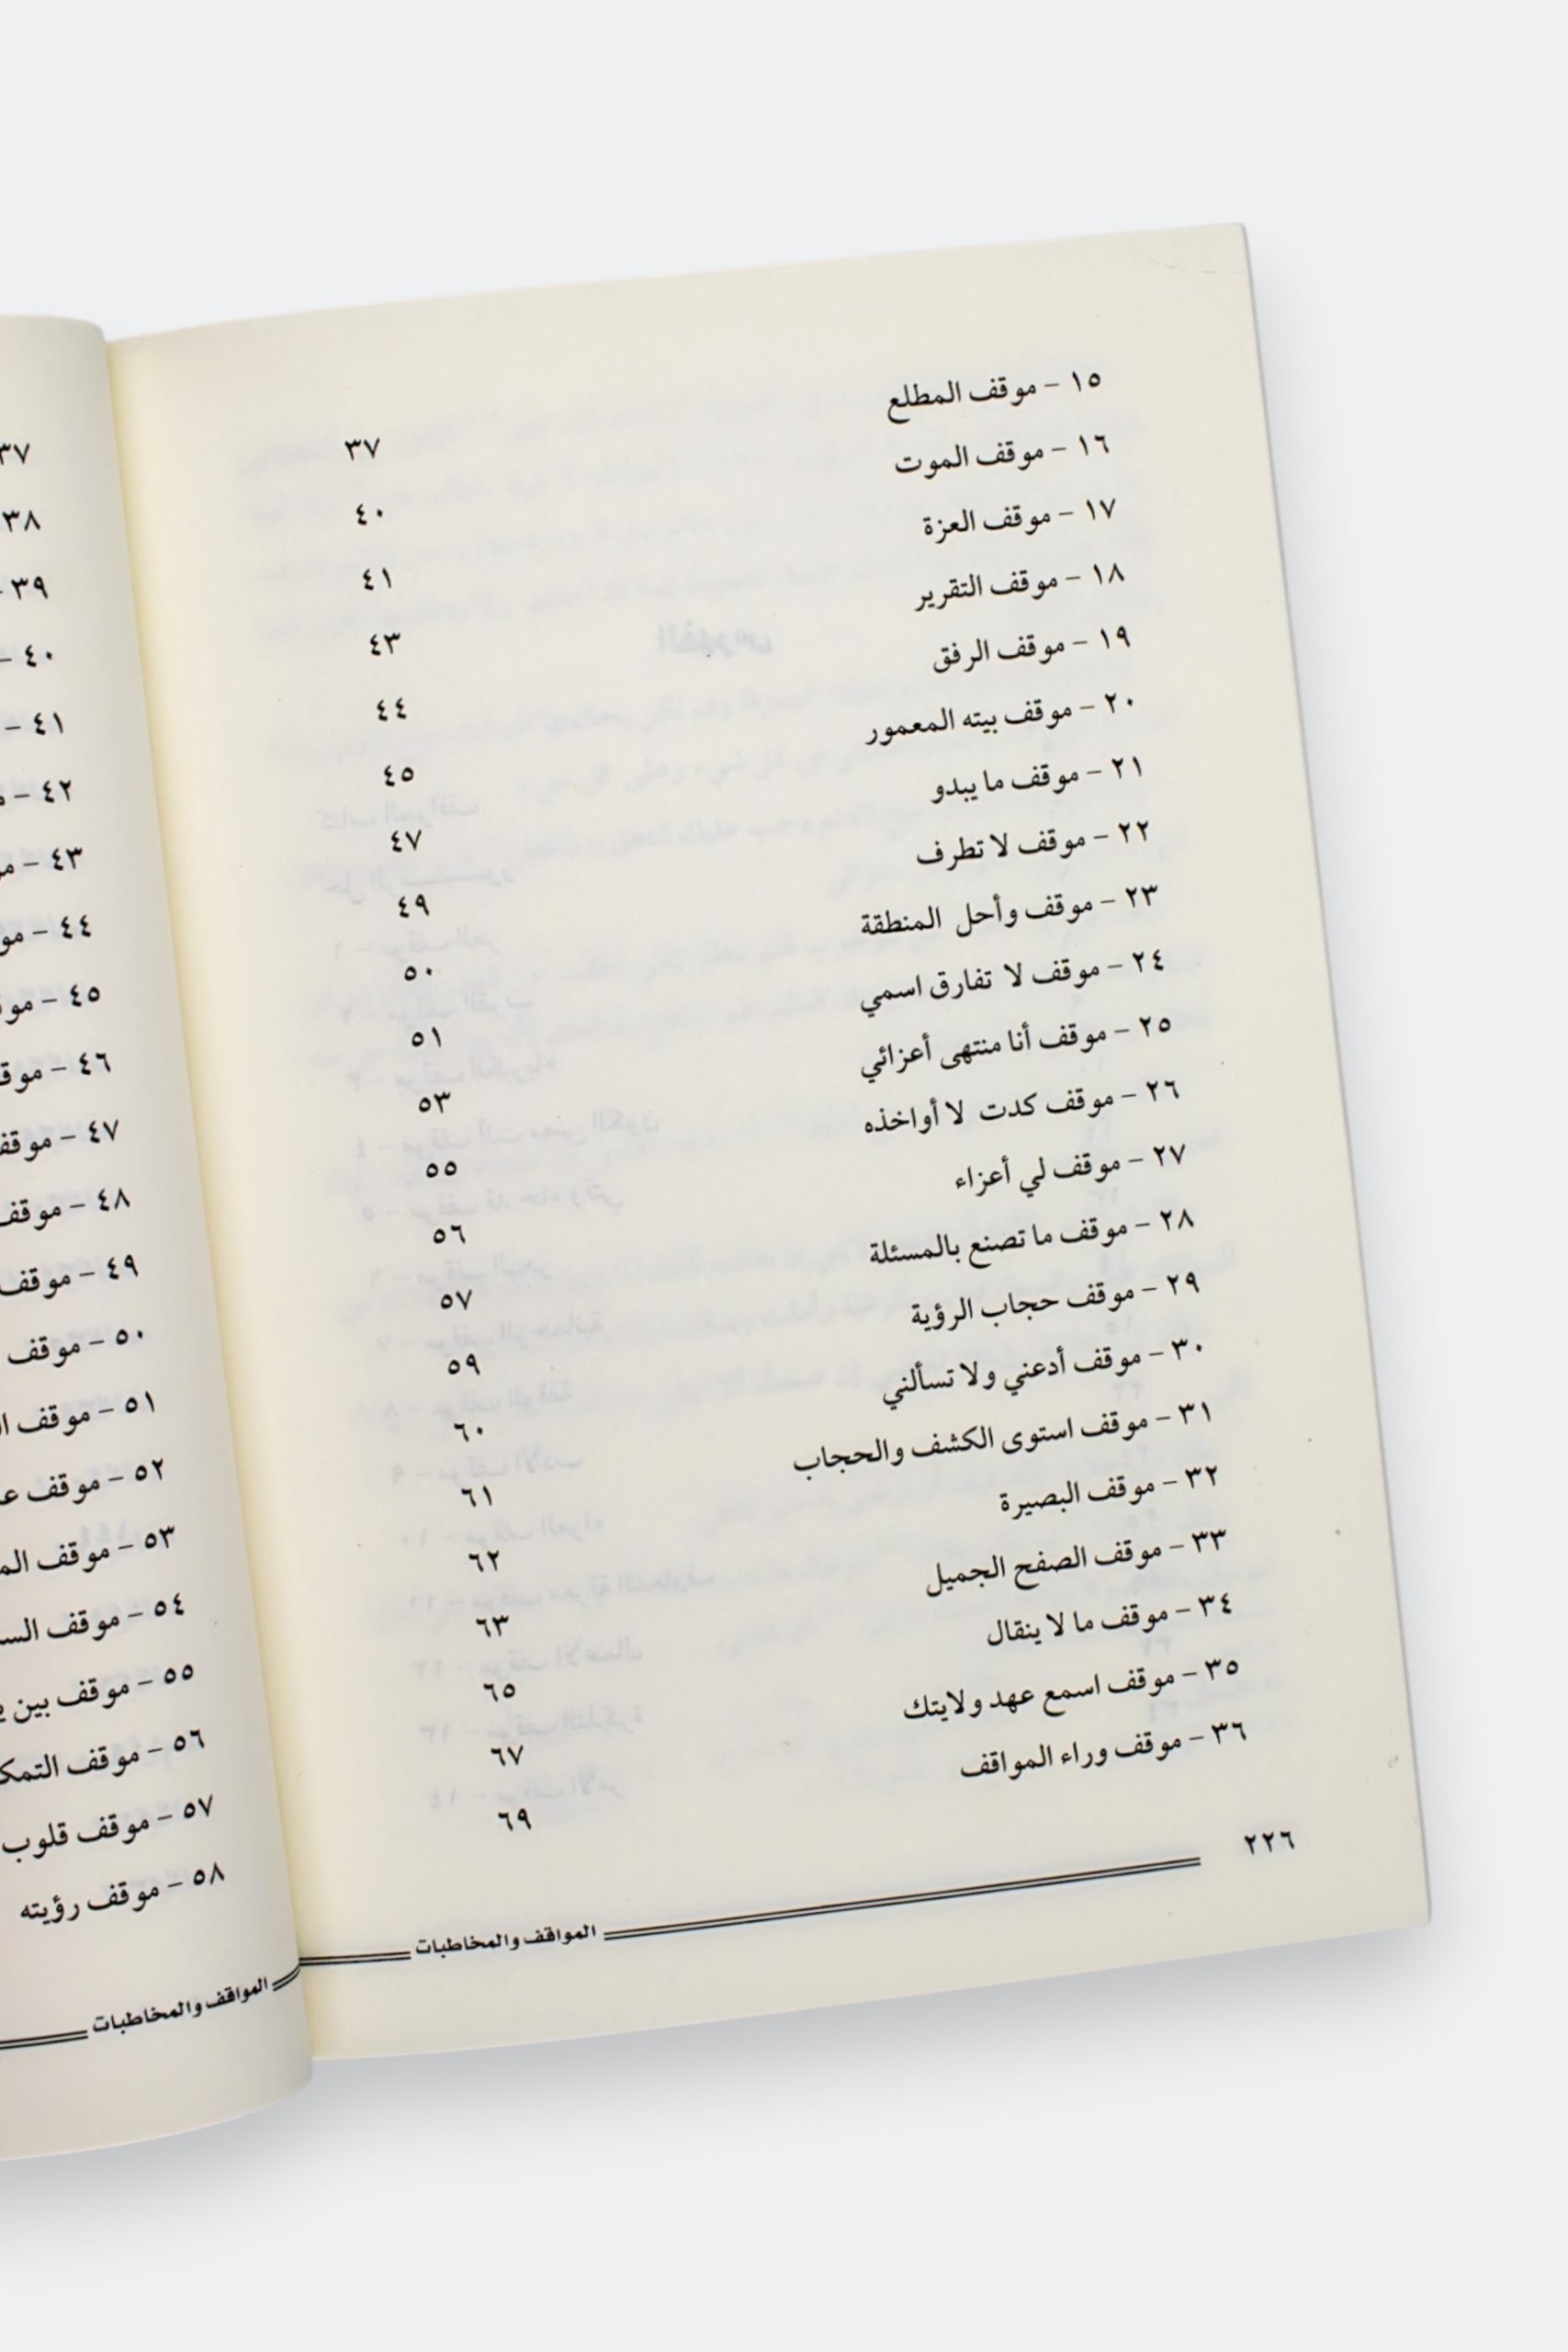 ١٥ - موقف المطلع ٣٧
١٦ - موقف الموت ٤٠
١٧ - موقف العزة ٤١
١٨ - موقف التقرير ٤٣
١٩ - موقف الرفق ٤٤
٢٠ - موقف بيته المعمور ٤٥
٢١ - موقف ما يبدو ٤٧
٢٢ - موقف لا تطرف ٤٩
٢٣ - موقف وأحل المنطقة ٥٠
٢٤ - موقف لا تفارق اسمي ٥١
٢٥ - موقف أنا منتهى أعزائي ٥٣
٢٦ - موقف كدت لا أواخذه ٥٥
٢٧ - موقف لي أعزاء ٥٦
٢٨ - موقف ما تصنع بالمسئلة ٥٧
٢٩ - موقف حجاب الرؤية ٥٩
٣٠ - موقف أدعني ولا تسألني ٦٠
٣١ - موقف استوى الكشف والحجاب ٦١
٣٢ - موقف البصيرة ٦٢
٣٣ - موقف الصفح الجميل ٦٣
٣٤ - موقف ما لا ينقال ٦٥
٣٥ - موقف اسمع عهد ولايتك ٦٧
٣٦ - موقف وراء المواقف ٦٩
٢٢٦
المواقف والمخاطبات
٣٧
٣٨
٣٩ -
٤٠ -
٤١ -
٤٢ -
٤٣ -
٤٤ -
٤٥ -
٤٦ -
٤٧ - موقف
٤٨ - موقف
٤٩ - موقف
٥٠ - موقف
٥١ - موقف
٥٢ - موقف
٥٣ - موقف
٥٤ - موقف
٥٥ - موقف بين
٥٦ - موقف
٥٧ - موقف قلوب
٥٨ - موقف رؤيته
المواقف والمخاطبات